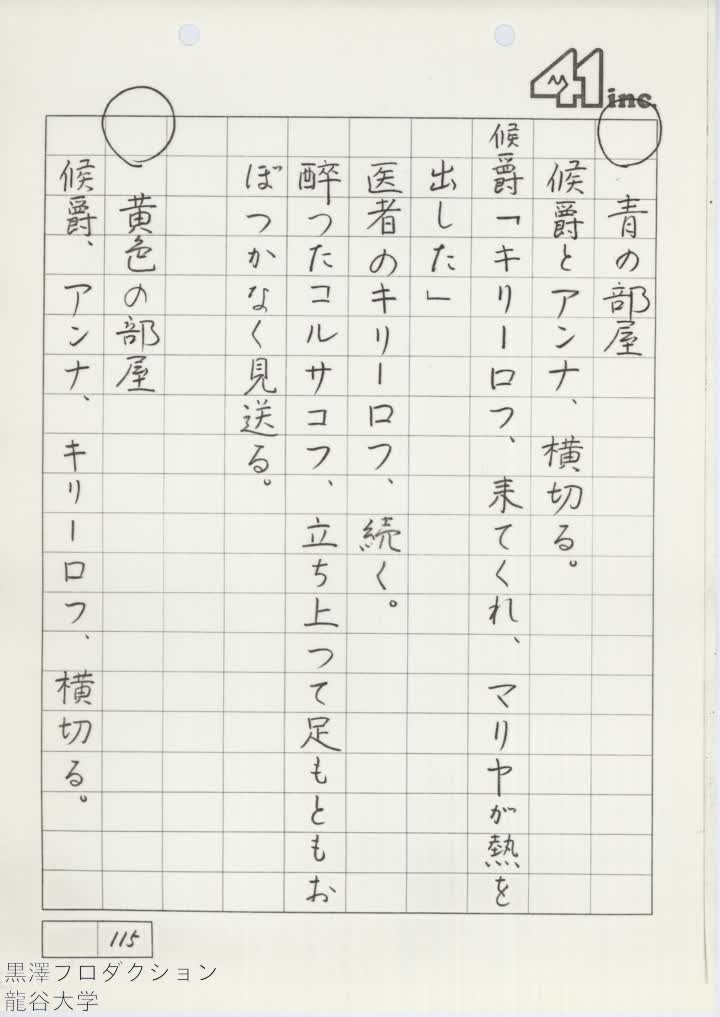 41 inc.
青の部屋
候爵とアンナ、横切る。
候爵「キリーロフ、来てくれ、マリヤが熱を
出した」
医者のキリーロフ、続く。
酔つたコルサコフ、立ち上つて足もともお
ぼつかなく見送る。
黄色の部屋
候爵、アンナ、キリーロフ、横切る。
115
黒澤フロダクション
龍谷大学